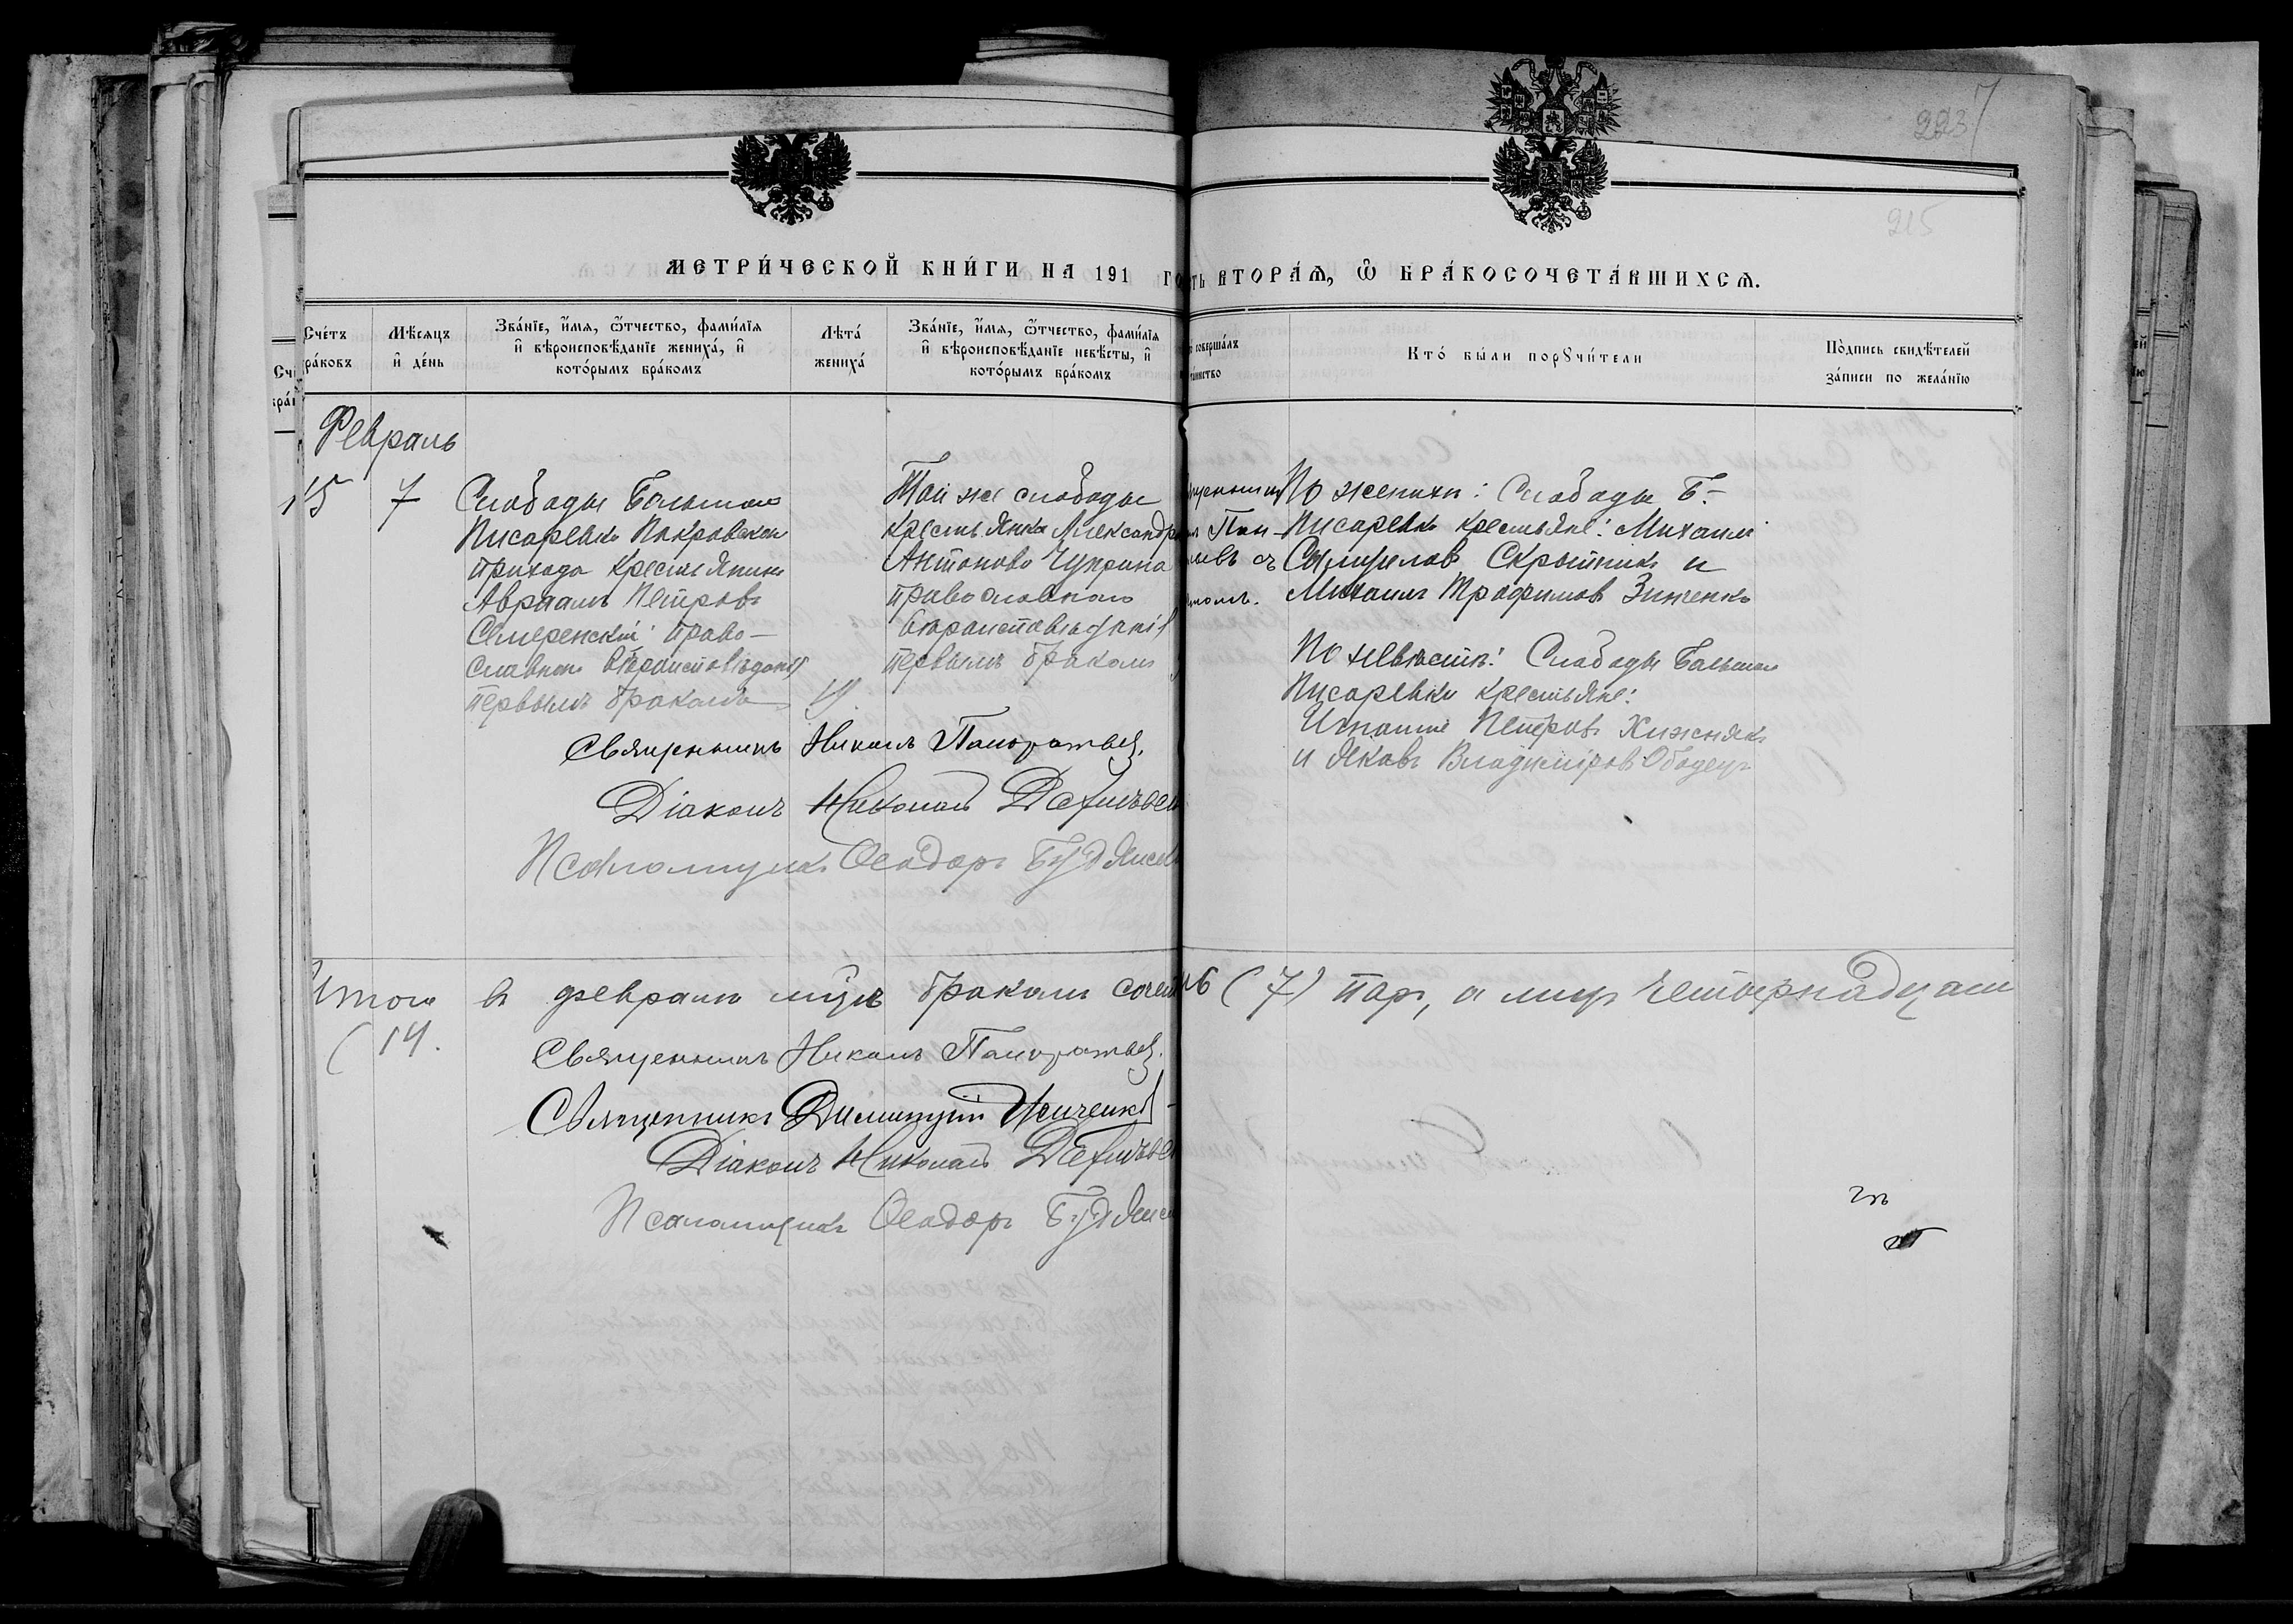 223
7
215
МЕТРИ́ЧЕСКОЙ КНИ́ГИ НА 191 ГО
ТЬ ВТОРА́Ѧ, Ѽ БРАКОСОЧЕТА́ВШИХСѦ.
Сче́тъ
ра́ковъ
Мѣ́сяцъ
и҆ де́нь
Зва́нїе, и҆́мѧ, ѻ҆́тчество, фами́лїѧ
и҆ вѣроисповѣ́данїе жениха̀, и҆
кото́рымъ бра́комъ
Лѣта̀
жениха̀
Зва́нїе, и҆́мѧ, ѻ҆́тчество, фами́лїѧ
и҆ вѣроисповѣ́данїе невѣ́сты, и҆
кото́рымъ бра́комъ
соверша́лъ
та́инство
Кто̀ бы́ли порꙋчи́тели
По́дпись свидѣ́телей
за́писи по жела́нїю
Февраль
15
7
Слободы Большой
Писаревки Покровской
прихода крестьянинъ
Авраамъ Петровъ
Семеренскій право-
славнаго вѣроисповѣданія
первымъ бракомъ
19.
Той же слободы
крестьянка Александра
Антонова Чуприна
православнаго
вѣроисповѣданія
первымъ бракомъ
Пан-
По женихѣ: Слободы Б.
Писаревки крестьяне: Михаилъ
Скрыпникъ и
Михаилъ Трофимовъ Зинченко
По невѣстѣ: Слободы Большой
Писаревки крестьяне:
Игнатій Петровъ Хижнякъ
и Яковъ Владиміровъ Ободецъ
Священникъ Николай Панкратьев.
Діаконъ Николай
Псаломщикъ Ѳеодоръ
Итого въ февралѣ мцѣ бракомъ сочет (7) паръ, а лицъ четырнадцать
(14.
Священникъ Николай Панкратьев.
Священникъ Димитрій
Діаконъ Николай
Псаломщикъ Ѳеодоръ